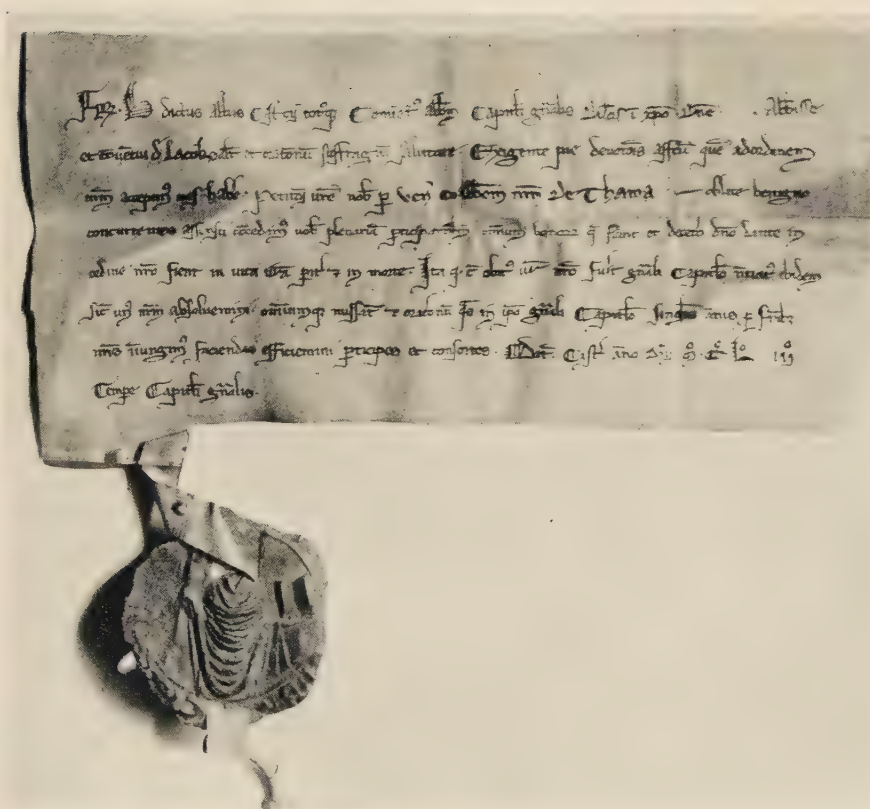 Fr̄. dictus Abbas Cistcij totusq; Conuent' Abbm Capituli gn̄alis Dilc̄is ī xp̄o Dn̄e . . Abb̄isse
et cōuentui d' Lacok salt̄ et or̄onum suffragiū salutare. Exigente pie deuoc̄ois affc̄u quē ad ordinem
nr̄m accepim' uos hab̄e. Petic̄oni vr̄e nob̄ p̱ ven̄ Coabb̄em nr̄m de Thama — oblate benigno
concurrentes assensu c̄cedim' uob̄ plenariā p̱ticipac̄om omnium bonor̄ q̄ fiunt et decet̄o dn̄o dante in
ordine nr̄o fient in uita p̱it̄ & in morte. Ita q' c̄ obit' ur̄ nr̄o fu̾it gn̄ali Capitulo nūciat' ibidem
sic̄ un' nr̄m absoluemini. omniumq; missar̄ & or̄onū q̄s in ip̄o gn̄ali Capitulo singulis annis p̱ fr̄ib;
nr̄is iniungim' faciendas efficiemini p̱ticipes et consortes. Dat̄. Cistc̄ āno Dn̄i. Mº. CCº. Lº iiiº
Temp̱e Capituli gn̄alis.